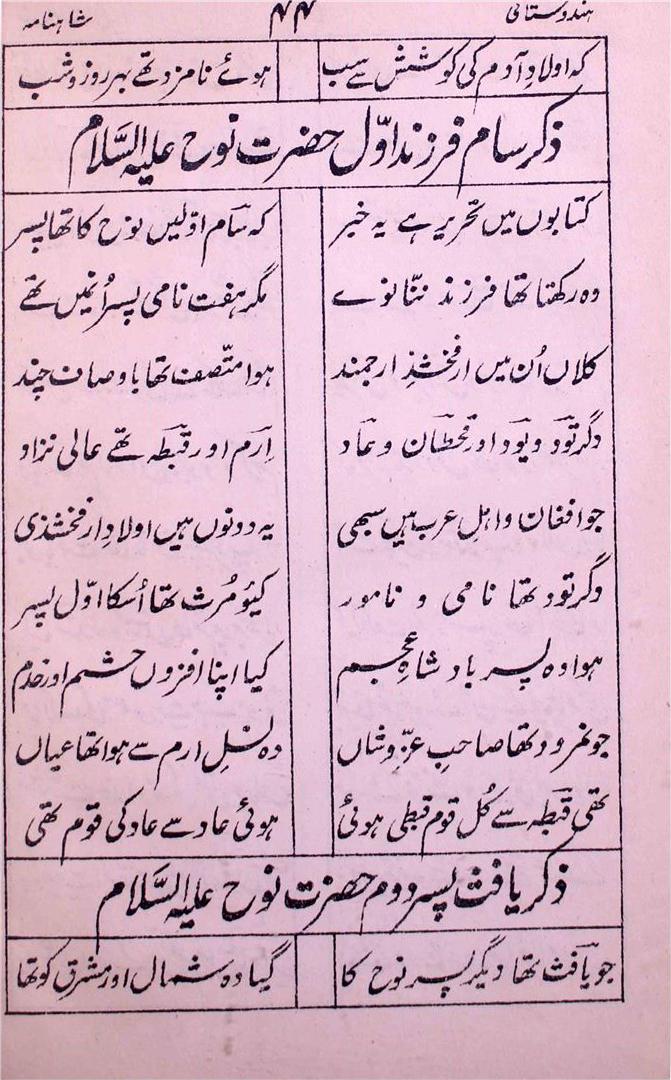 ہندوستانی ۴۴ شاہنامہ
کہ اولادِ آدم کی کوشش سے سب ہوئے نامزد تھے بہر روز و شب
ذکر سام فرزند اوّل حضرت نوح علیہ السَّلام
کتابوں میں تحریر ہے یہ خبر کہ سام اوّلیں نوح کا تھا پسر
وہ رکھتا تھا فرزند ننّانوے مگر ہفت نامی پسر اُنمیں تھے
کلاں اُن میں ارفخشذِ ارجمند ہوا متّصف تھا باوصاف چند
دگر تود و یود اور قحطان و عاد اِرم اور قبطہ تھے عالی نژاد
جو افغان و اہلِ عرب ہیں سبھی یہ دونوں ہیں اولادِ ارفخشذی
دگر تود تھا نامی و نامور کیومُرث تھا اُسکا اوّل پسر
ہوا وہ پسر بادشاہِ عجم کیا اپنا افزوں حشم اور خدم
جو نمرود تھا صاحبِ عزّ و شاں وہ نسلِ ارم سے ہوا تھا عیاں
تھی قبطہ سے کُل قوم قبطی ہوئی ہوئی عاد سے عاد کی قوم تھی
ذکر یافث پسر دوم حضرت نوح علیہ السَّلام
جو یافث تھا دیگر پسر نوح کا گیا وہ شمال اور مشرق کو تھا